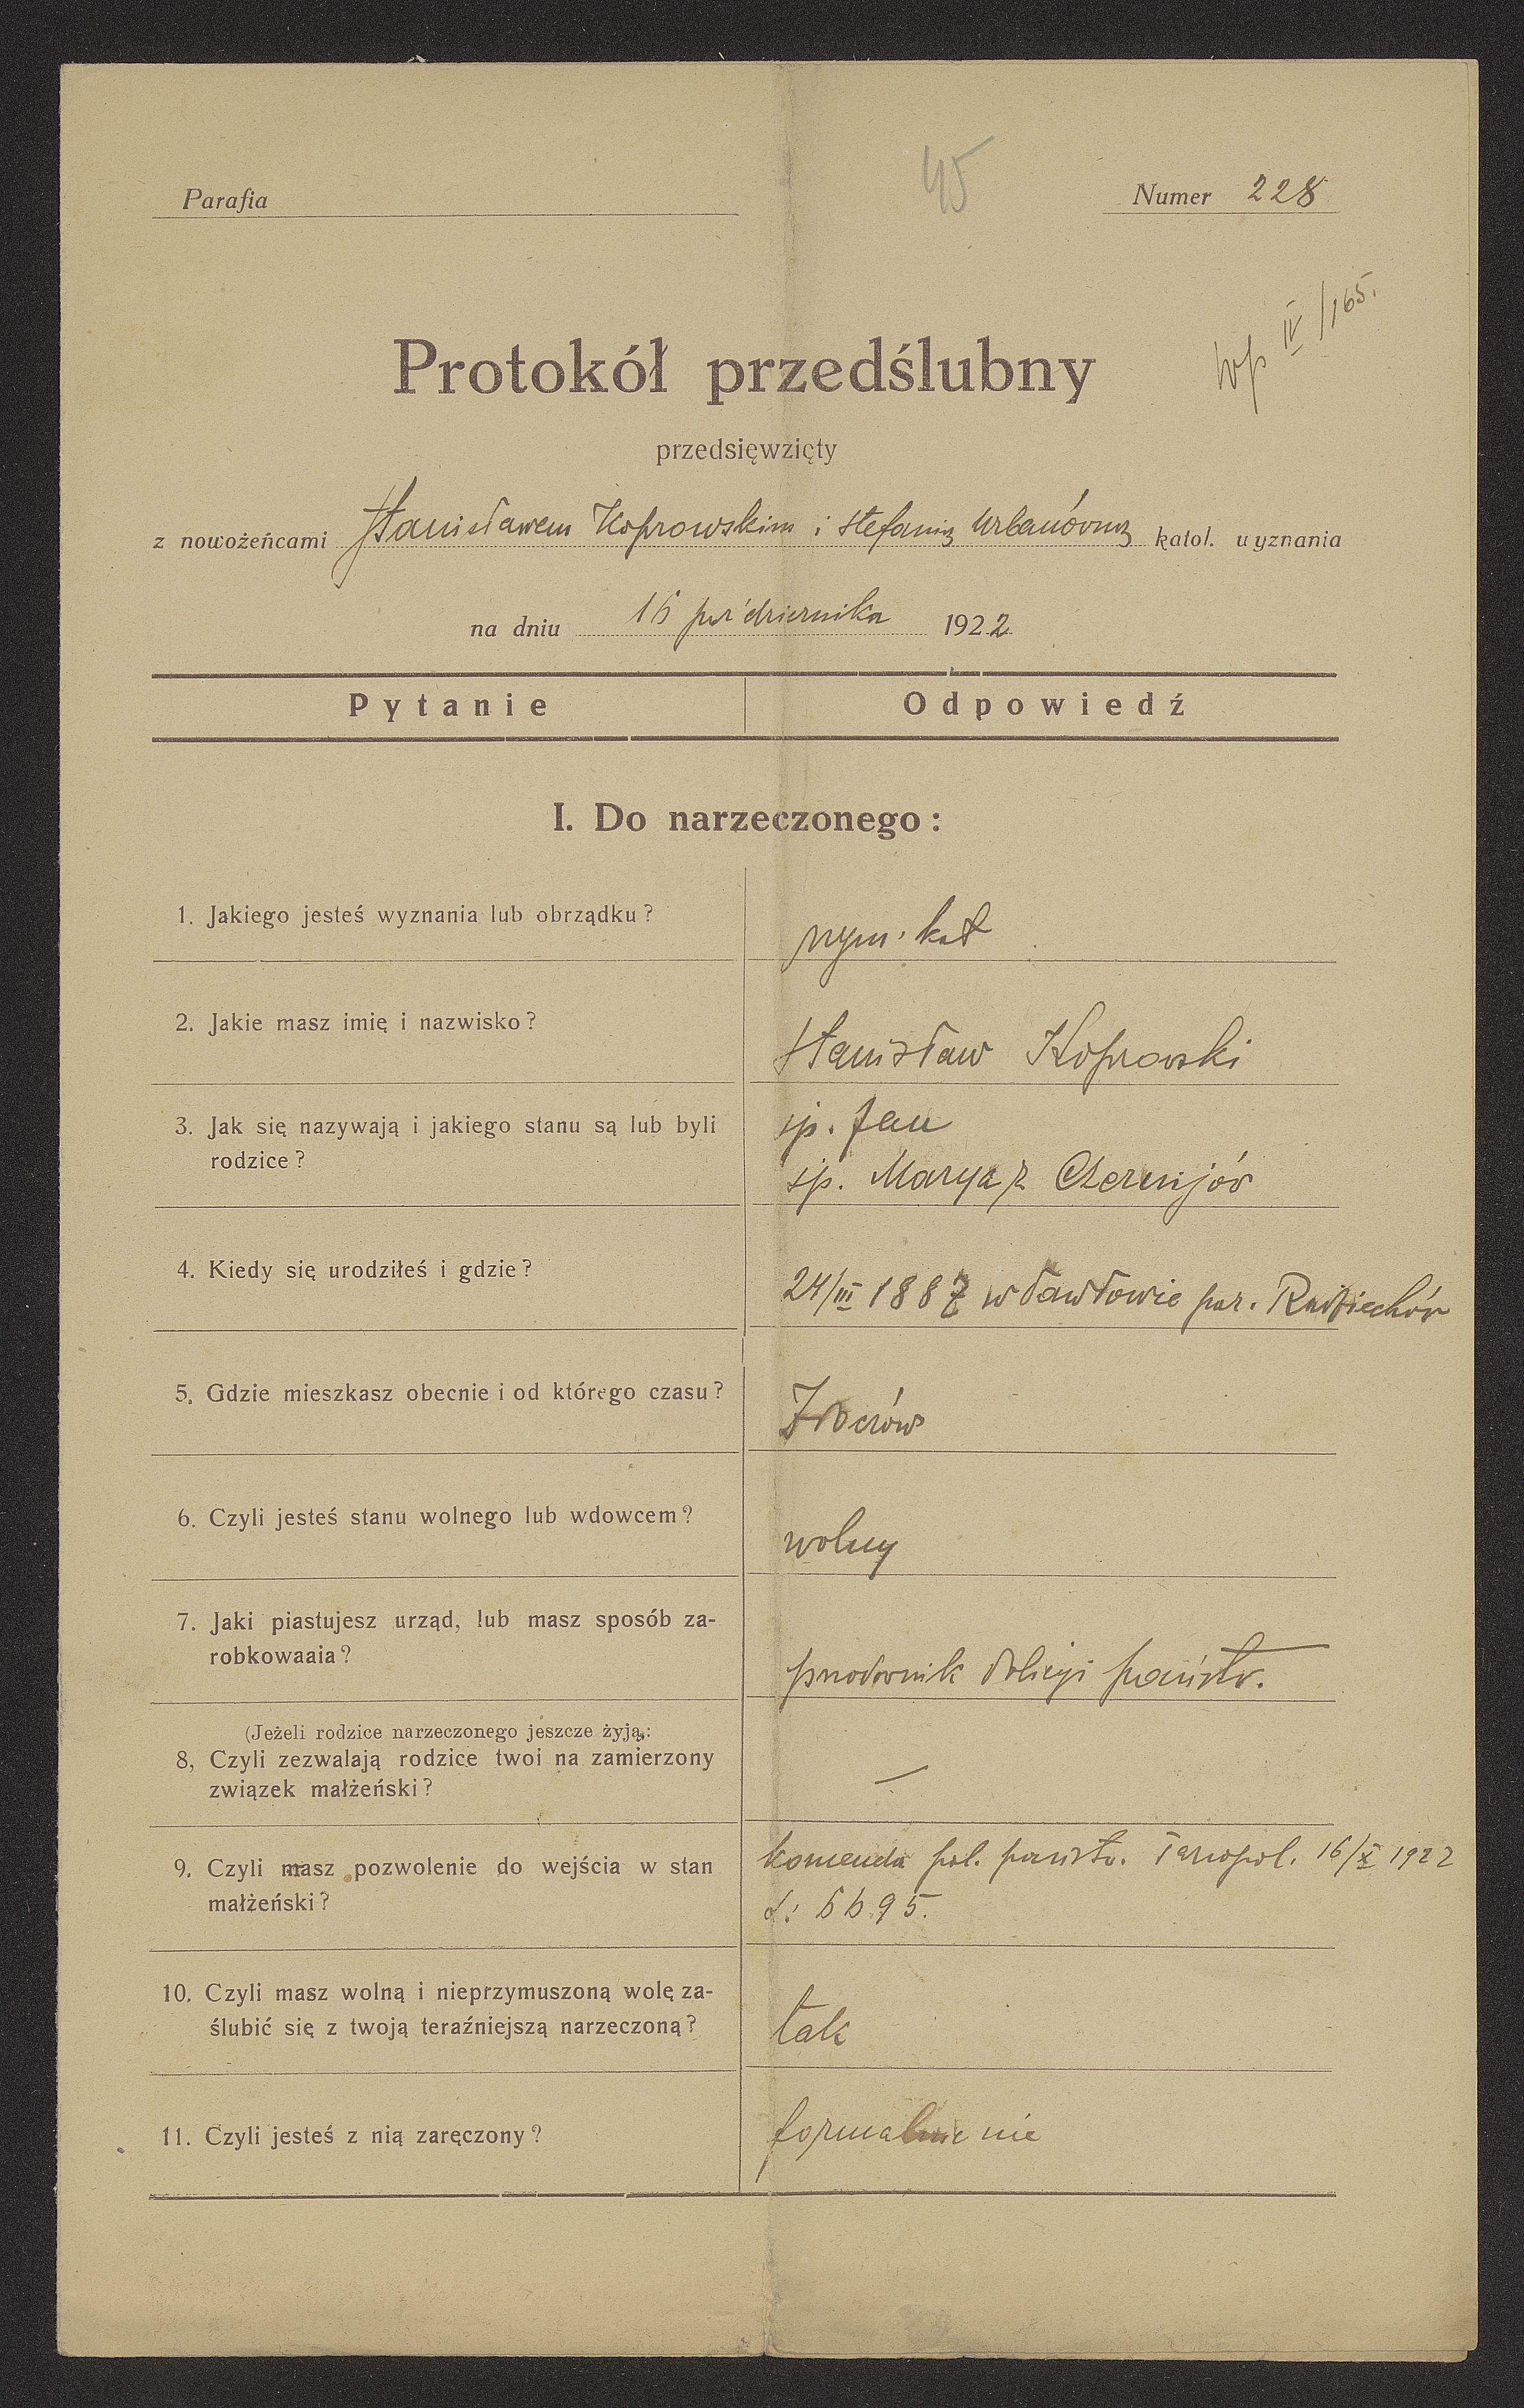 45
Parafia
Numer 228
wp IV/165.
Protokół przedślubny
przedsięwzięty
z nowożeńcami Stanisławem Koprowskim i Stefanią Urbanówną katol. wyznania
na dniu 16 października 1922
Pytanie Odpowiedź
I. Do narzeczonego:
1. Jakiego jesteś wyznania lub obrządku?
rzym. kat
2. Jakie masz imię i nazwisko?
Stanisław Koprowski
3. Jak się nazywają i jakiego stanu są lub byli
rodzice?
śp. Jan
śp. Marya z Czernijów
4. Kiedy się urodziłeś i gdzie?
24/III 1887 w par.
5. Gdzie mieszkasz obecnie i od którego czasu?
Zborów
6. Czyli jesteś stanu wolnego lub wdowcem?
wolny
7. Jaki piastujesz urząd, lub masz sposób za-
robkowaaia?
przodownik Policyi państw.
(Jeżeli rodzice narzeczonego jeszcze żyją,:
8, Czyli zezwalają rodzice twoi na zamierzony
związek małżeński?
—
9. Czyli masz pozwolenie do wejścia w stan
małżeński?
Komenda pol. państw. Tarnopol. 16/X 1922
L: 6695.
10. Czyli masz wolną i nieprzymuszoną wolę za-
ślubić się z twoją teraźniejszą narzeczoną?
tak
11. Czyli jesteś z nią zaręczony?
formalnie nie